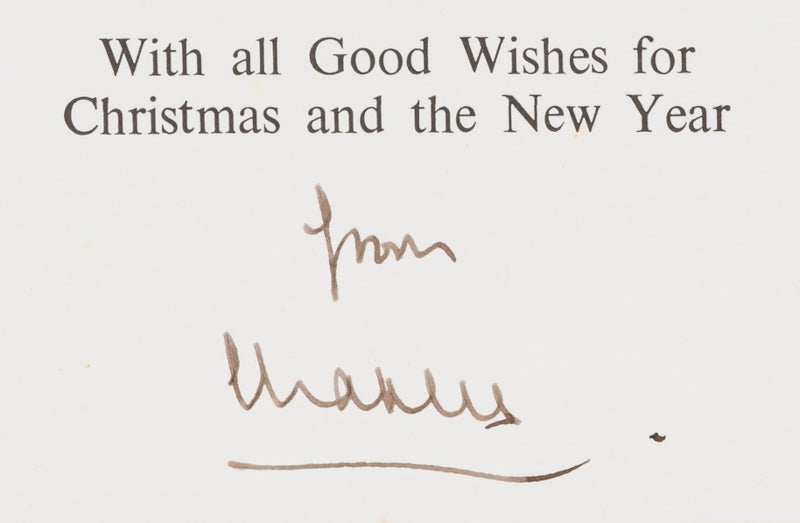 With all Good Wishes for
Christmas and the New Year
from
Charles